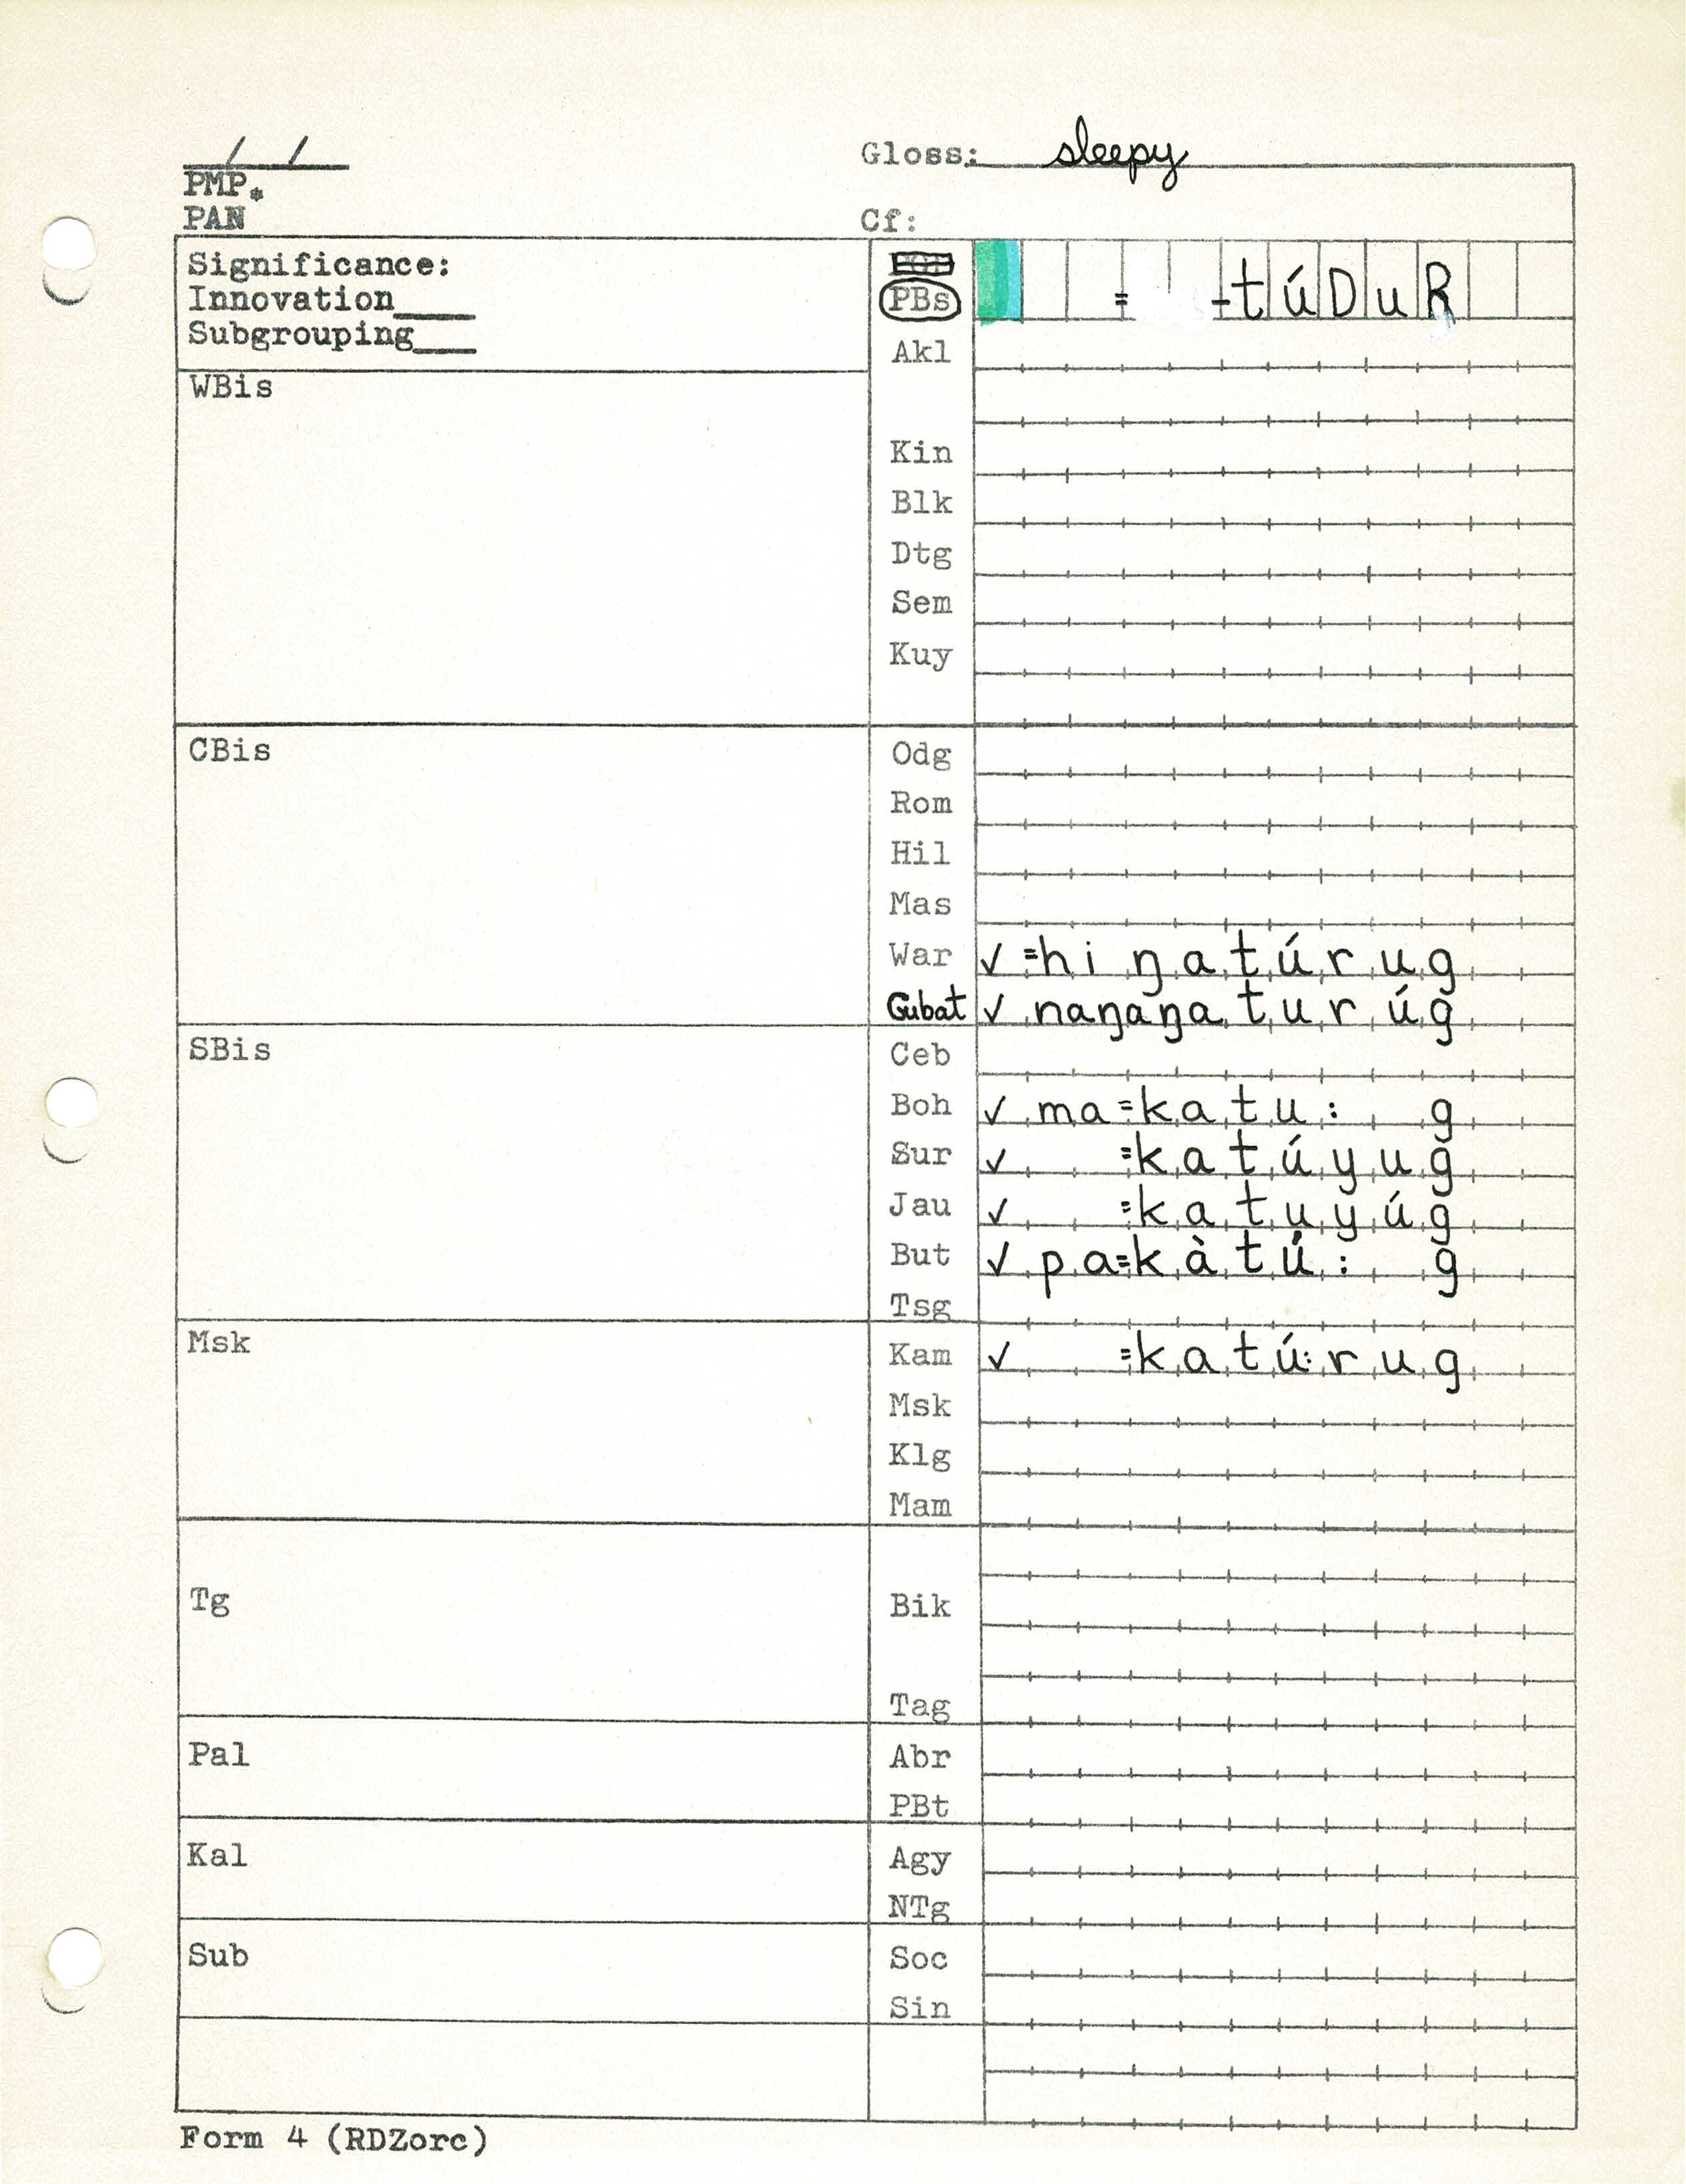 / /
Gloss: sleepy
PMP*
PAN
Cf:
Significance:
Innovation____
Subgrouping___
PBs = -túDuR
Akl
WBis
Kin
Blk
Dtg
Sem
Kuy
CBis
Odg
Rom
Hil
Mas
War ✓ =hiŋatúrug
Gubat ✓ naŋaŋaturúg
SBis
Ceb
Boh ✓ ma=katu: g
Sur ✓ =katúyug
Jau ✓ =katuyúg
But ✓ pa=kàtú: g
Tsg
Msk
Kam ✓ =katú:rug
Msk
Klg
Mam
Tg
Bik
Tag
Pal
Abr
PBt
Kal
Agy
NTg
Sub
Soc
Sin
Form 4 (RDZorc)